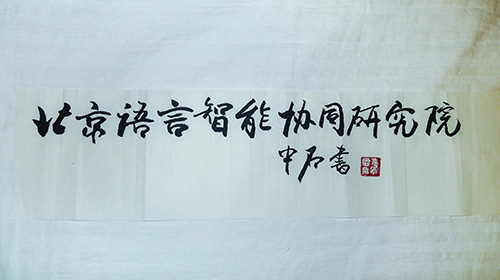 北京语言智能协同研究院
中石书